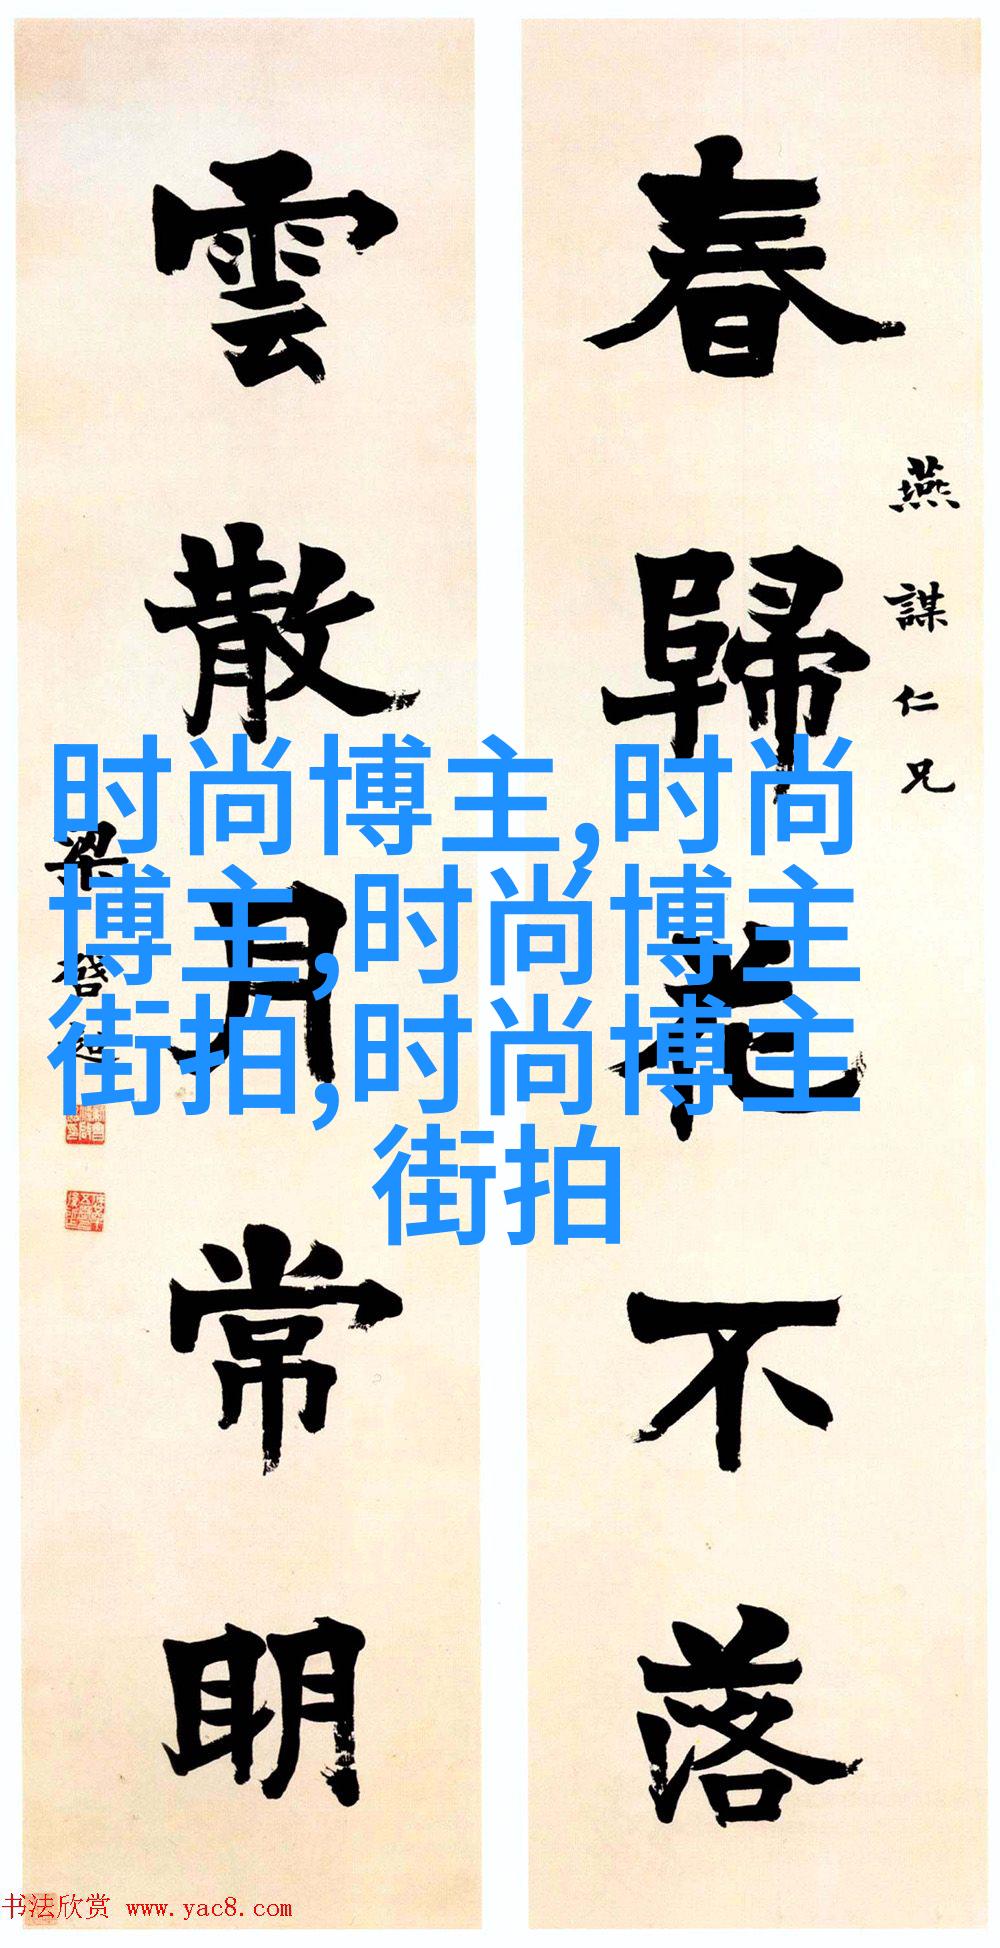 春歸花不落
燕謀仁兄
雲散月常明
梁啓超
时尚博主,时尚
博主,时尚博主
街拍,时尚博主
街拍
书法欣赏 www.yac8.com